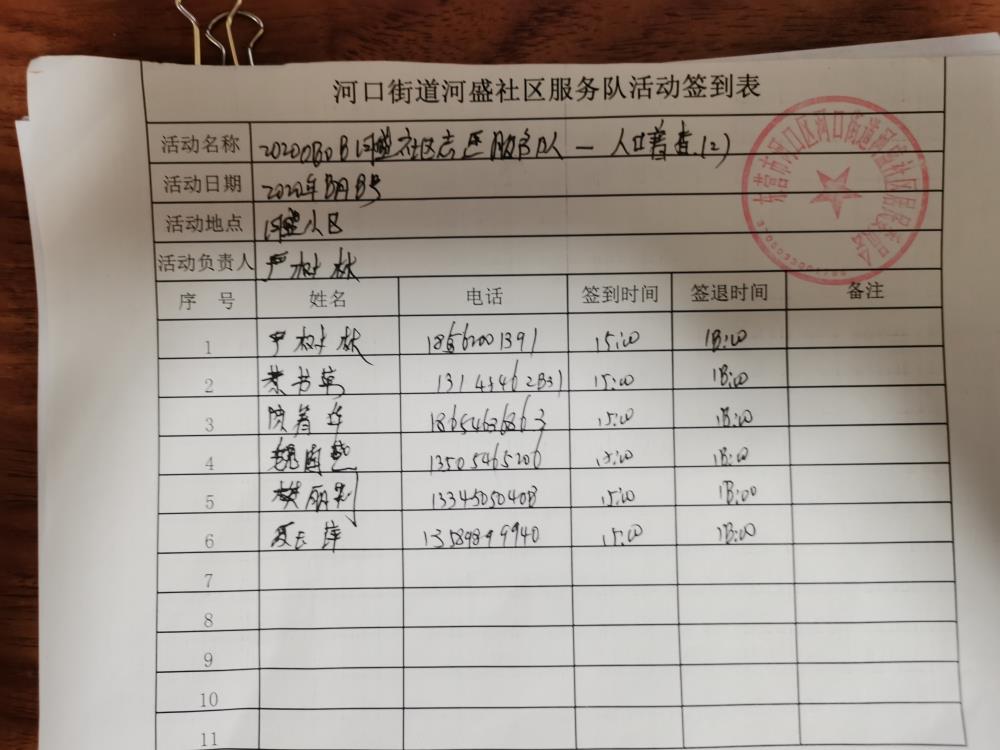 河口街道河盛社区服务队活动签到表
活动名称 20200808河盛社区志愿服务队—人口普查(2)
活动日期 2020年8月8号
活动地点 河盛小区
活动负责人 严树林
序号 姓名 电话 签到时间 签退时间 备注
1 严树林 18562001391 15:00 18:00
2 13143462831 15:00 18:00
3 18654636863 15:00 18:00
4 13505465206 15:00 18:00
5 樊丽利 13345050408 15:00 18:00
6 13589899940 15:00 18:00
7
8
9
10
11